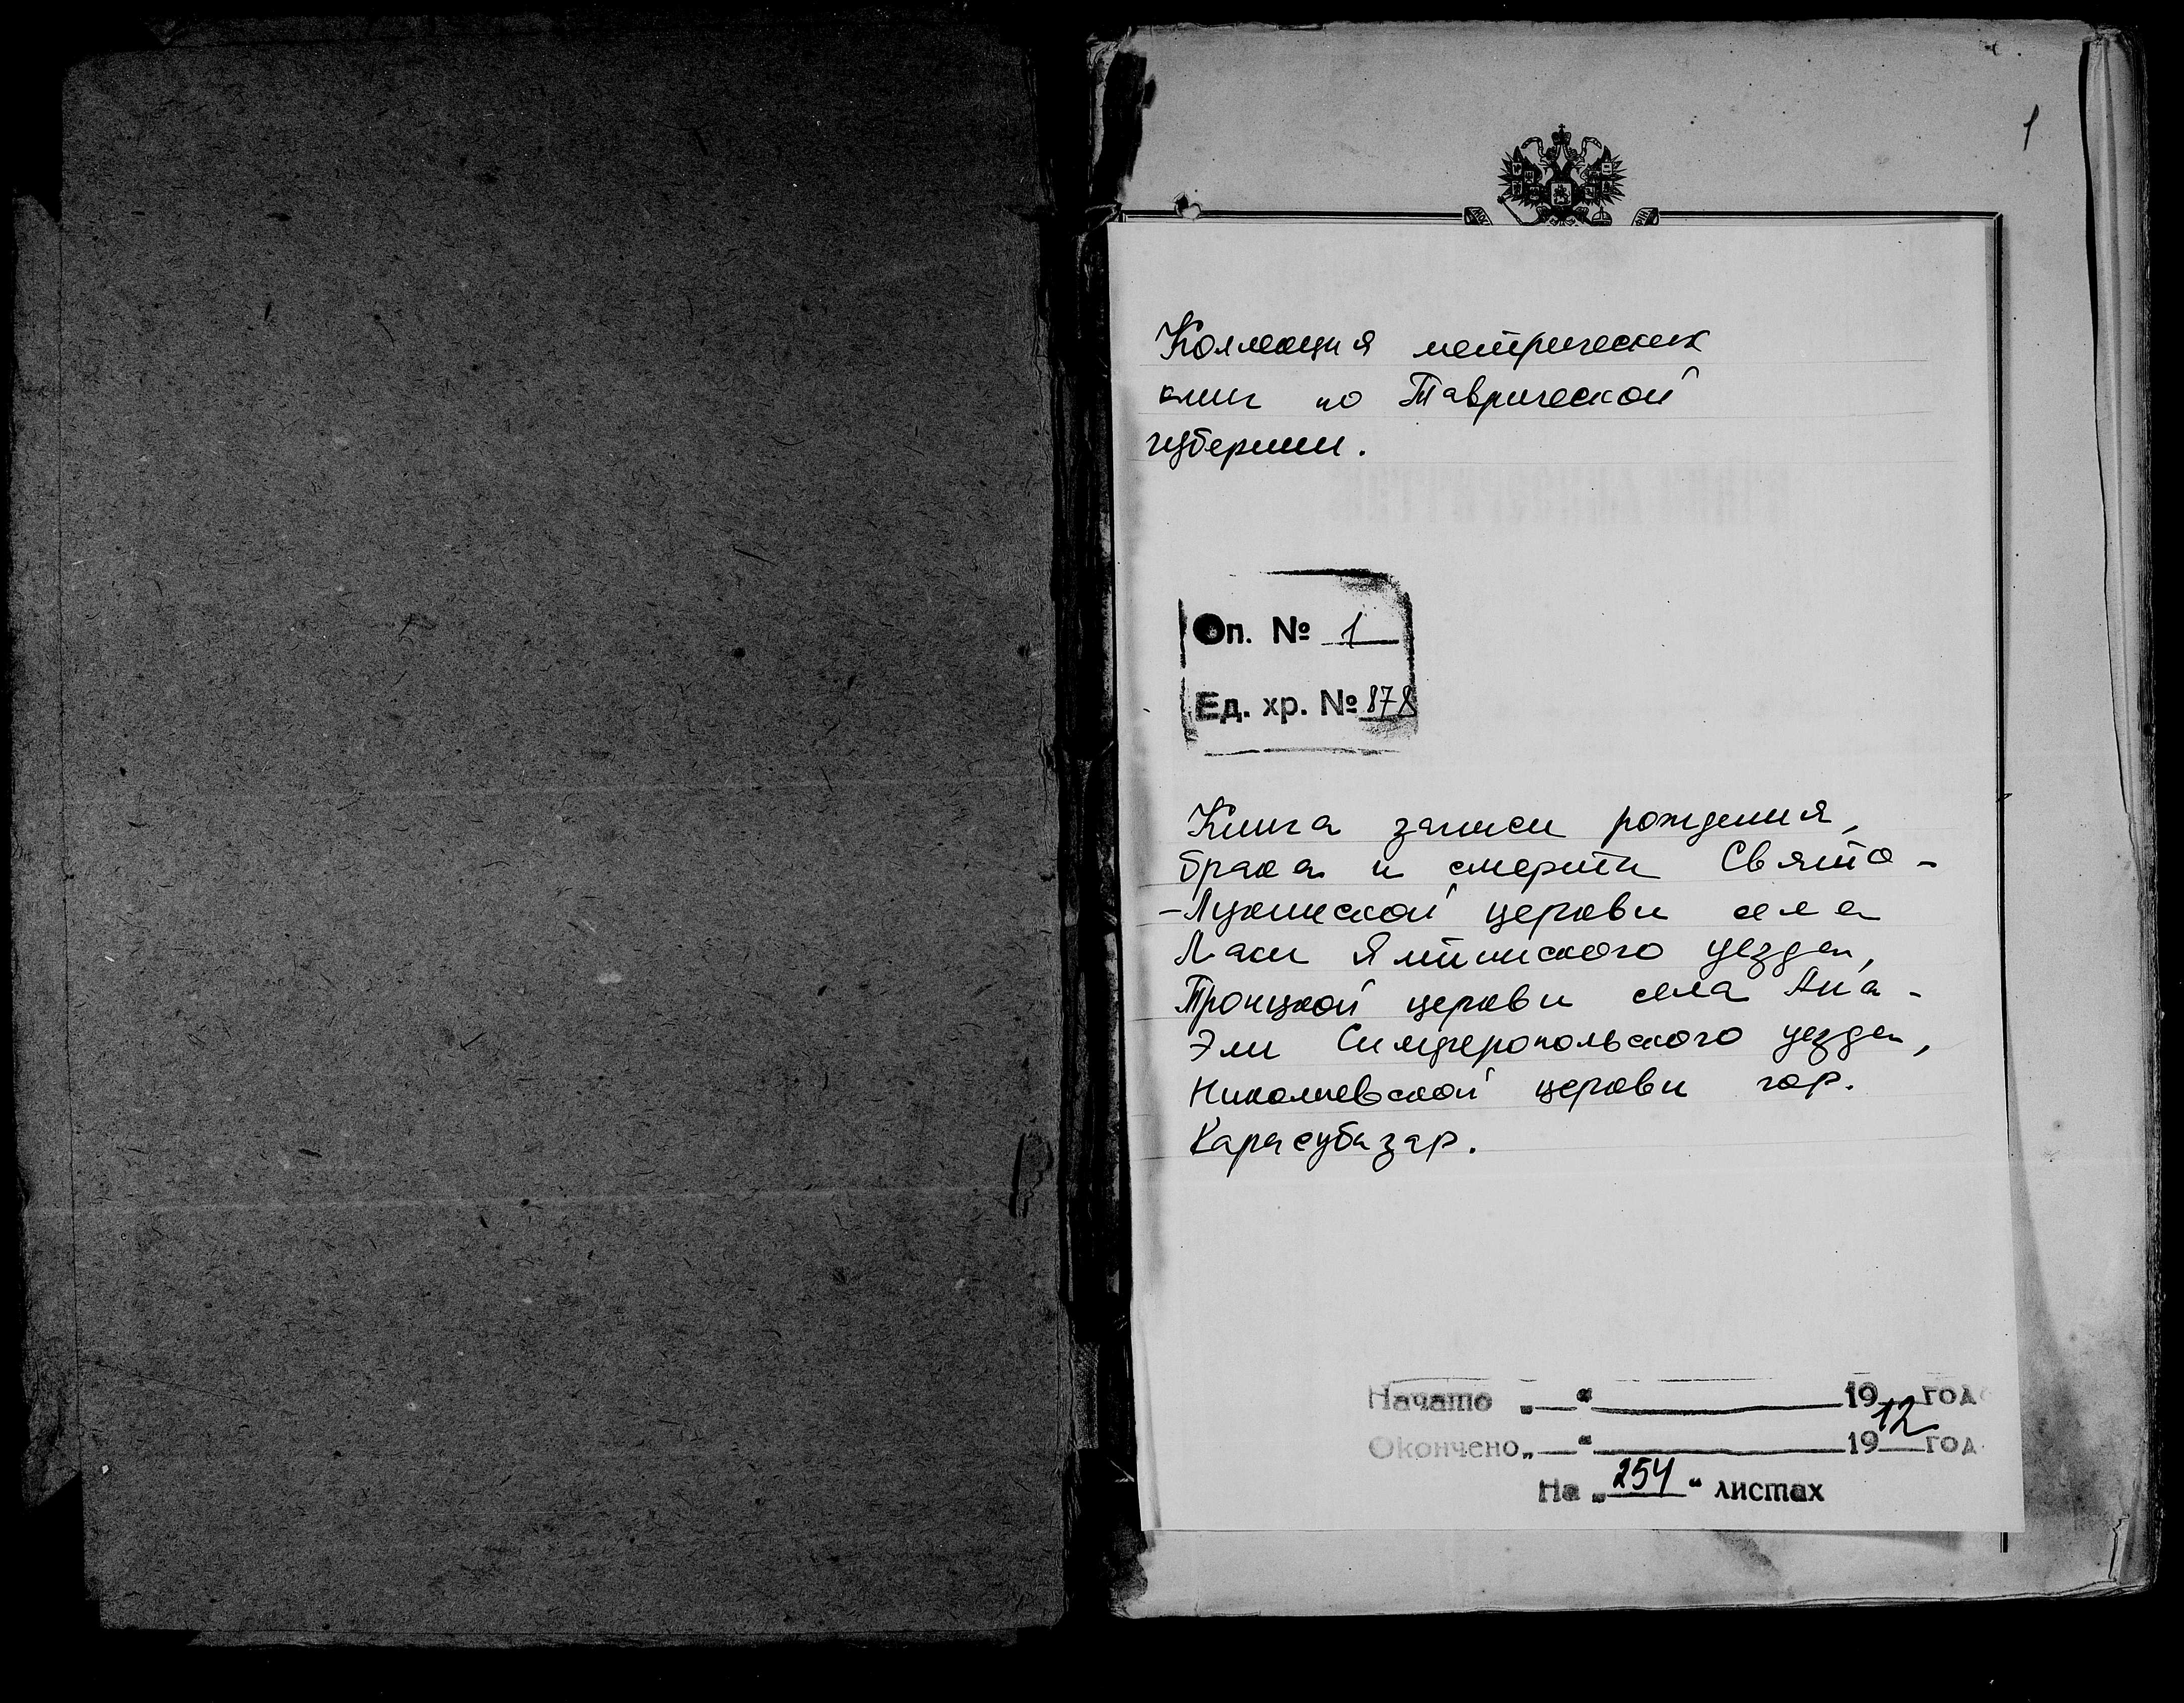 1
Коллекция метрических
книг по Таврической
губернии.
Оп. № 1
Ед. хр. № 878
Книга записи рождения,
брака и смерти Свято-
-Лукинской церкви села
Лаки Ялтинского уезда,
Троицкой церкви села Ана-
Эли Симферопольского уезда,
Николаевской церкви гор.
Карасубазар.
Начато „ “ 1912 год
Окончено „ “ 19 год
На „254“ листах